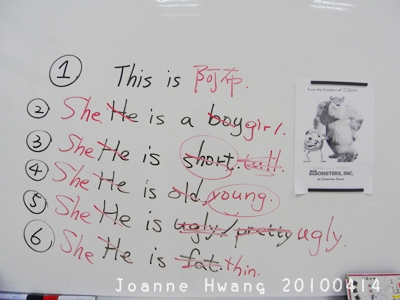 ① This is 阿珅.
② She He is a boy girl.
③ She He is short. tall.
④ She He is old. young.
⑤ She He is ugly/pretty ugly.
⑥ She He is fat. thin.
MONSTERS, INC.
Joanne Hwang 20100414